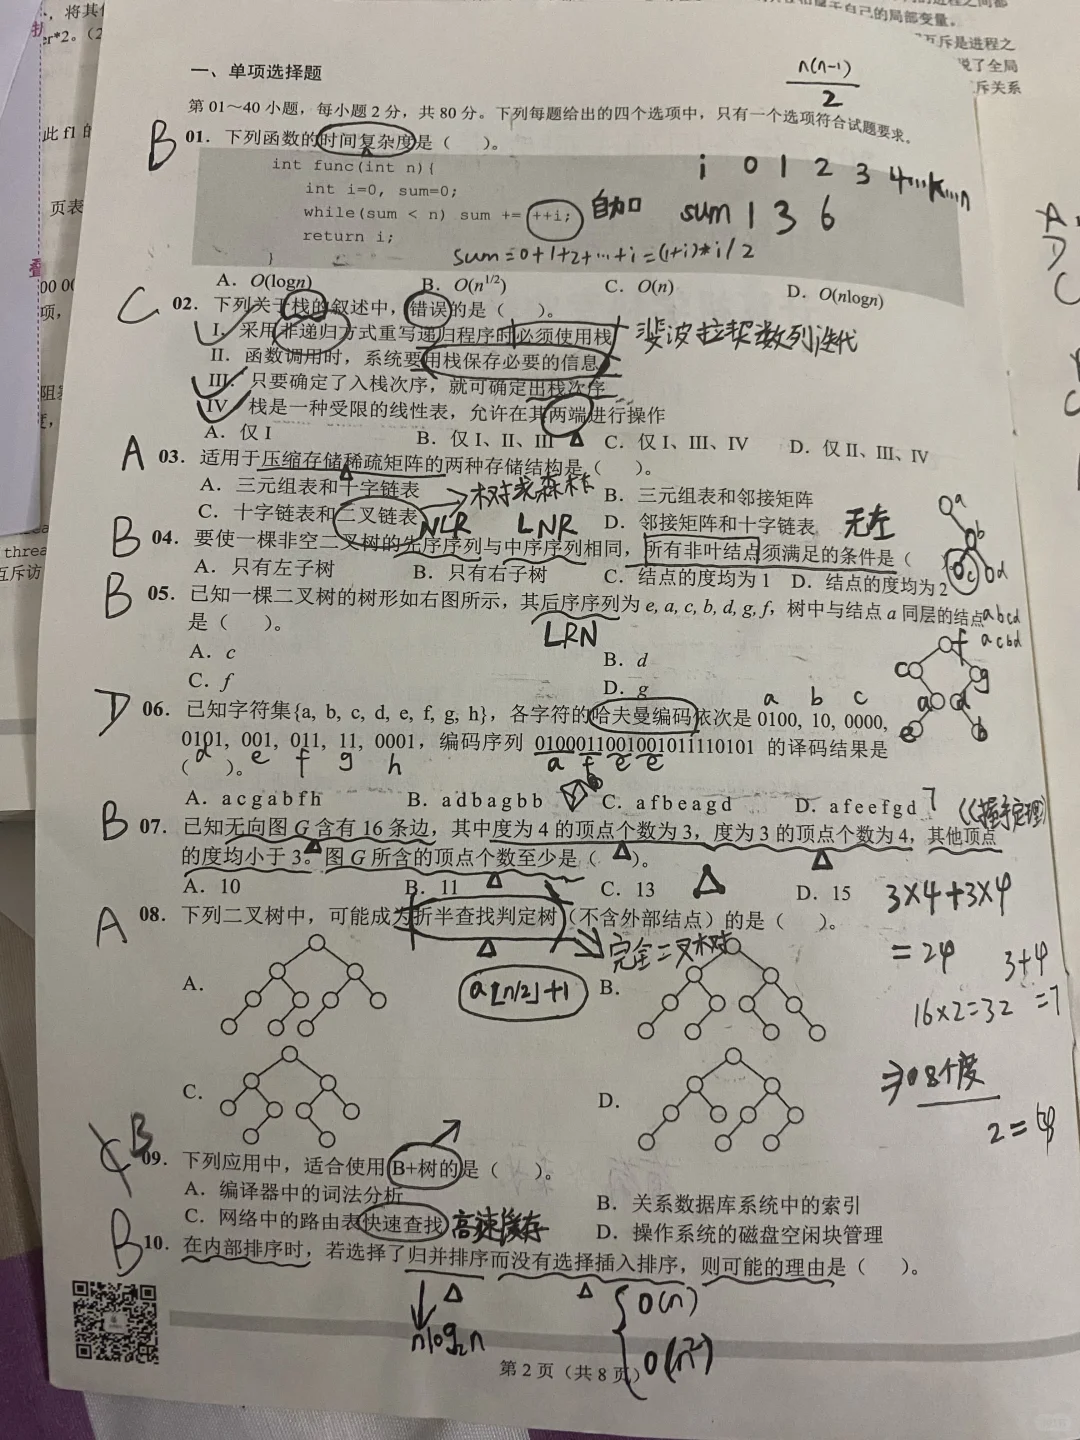 ，将其
er*2。(2
此 f1 的
页表
叠
00 0
项，
阻塞
threa
互斥访
自己的局部变量。
互斥是进程之
说了全局
斥关系
n(n-1)
2
一、单项选择题
第 01～40 小题，每小题 2 分，共 80 分。下列每题给出的四个选项中，只有一个选项符合试题要求。
B 01．下列函数的时间复杂度是（ ）。
int func(int n){
int i=0, sum=0;
while(sum < n) sum += ++i;
return i;
}
自加
i 0 1 2 3 4…k…n
sum 1 3 6
sum=0+1+2+…+i=(1+i)*i/2
A．O(logn) B．O(n1/2) C．O(n) D．O(nlogn)
C 02．下列关于栈的叙述中，错误的是（ ）。
I．采用非递归方式重写递归程序时必须使用栈 斐波拉契数列迭代
II．函数调用时，系统要用栈保存必要的信息
III．只要确定了入栈次序，就可确定出栈次序
IV．栈是一种受限的线性表，允许在其两端进行操作
A．仅 I B．仅 I、II、III C．仅 I、III、IV D．仅 II、III、IV
A 03．适用于压缩存储稀疏矩阵的两种存储结构是（ ）。
A．三元组表和十字链表 B．三元组表和邻接矩阵
树或森林
C．十字链表和二叉链表 D．邻接矩阵和十字链表
NLR LNR 无左
B 04．要使一棵非空二叉树的先序序列与中序序列相同，所有非叶结点须满足的条件是（
A．只有左子树 B．只有右子树 C．结点的度均为 1 D．结点的度均为 2
a
b
c d
B 05．已知一棵二叉树的树形如右图所示，其后序序列为 e, a, c, b, d, g, f，树中与结点 a 同层的结点
是（ ）。
LRN
abcd
acbd
A．c B．d
C．f D．g
f
c g
a d
e b
D 06．已知字符集{a, b, c, d, e, f, g, h}，各字符的哈夫曼编码依次是 0100, 10, 0000,
a b c
0101, 001, 011, 11, 0001，编码序列 0100011001001011110101 的译码结果是
d e f g h
a f e e
（ ）。
A．a c g a b f h B．a d b a g b b C．a f b e a g d D．a f e e f g d
7 (《握手定理》)
B 07．已知无向图 G 含有 16 条边，其中度为 4 的顶点个数为 3，度为 3 的顶点个数为 4，其他顶点
的度均小于 3。图 G 所含的顶点个数至少是（ ）。
A．10 B．11 C．13 D．15
3×4+3×4
=24
3+4
=7
16×2=32
⇒8个度
2=4
A 08．下列二叉树中，可能成为折半查找判定树（不含外部结点）的是（ ）。
完全二叉树
a⌊n/2⌋+1
A． B．
C． D．
C B 09．下列应用中，适合使用 B+树的是（ ）。
A．编译器中的词法分析 B．关系数据库系统中的索引
C．网络中的路由表快速查找 高速缓存 D．操作系统的磁盘空闲块管理
B 10．在内部排序时，若选择了归并排序而没有选择插入排序，则可能的理由是（ ）。
nlog2n
O(n)
O(n²)
第 2 页（共 8 页）